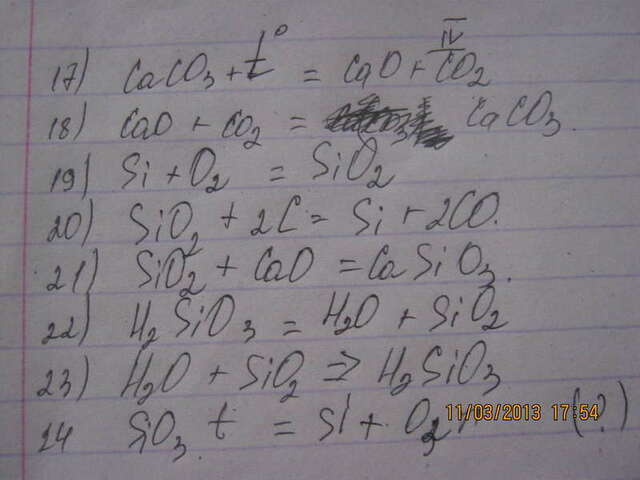 17) CaCO3 + t° = CaO + CO2 IV
18) CaO + CO2 = CaCO3.
19) Si + O2 = SiO2
20) SiO2 + 2C = Si + 2CO.
21) SiO2 + CaO = CaSiO3.
22) H2SiO3 = H2O + SiO2
23) H2O + SiO2 => H2SiO3
24 SiO3. t = Si + O2 (?)
11/03/2013 17:54